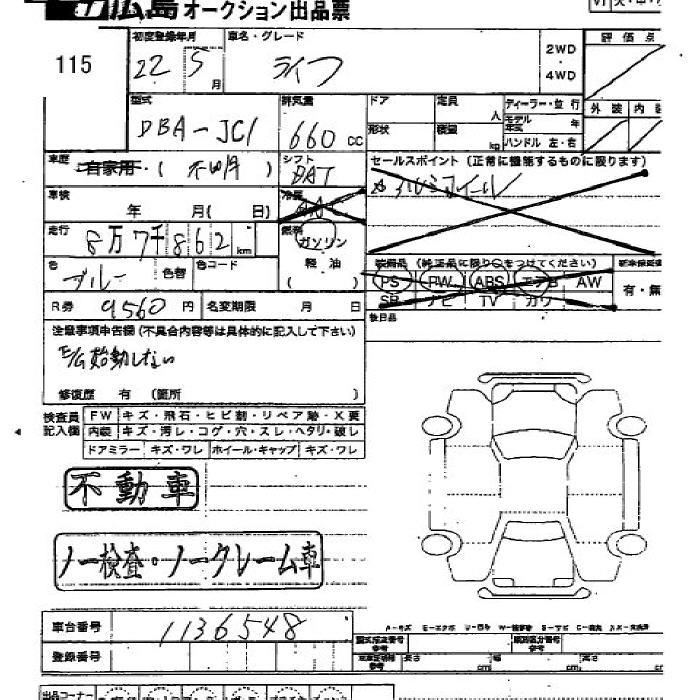 広島オークション出品票
115
初度登録年月 車名・グレード
22 5月 ライフ
2WD
・
4WD
評価点
型式 排気量
DBA-JC1 660cc
ドア 定員 人
形状 積量 kg
ディーラー・並行
モデル年式 年
ハンドル 左・右
外装 内
車歴 自家用・(不明) シフト DAT
セールスポイント(正常に機能するものに限ります)
アルミホイール
車検 年 月(日) 冷房 AA
走行 8万7千862km 燃料 ガソリン
軽油
( )
色 ブルー 色替 色コード
装備品(純正品に限り○をつけてください)
PS PW ABS エアB AW
SR ナビ TV カワ
有・無
R券 9560円 名変期限 月 日
後日品
注意事項申告欄(不具合内容等は具体的に記入して下さい)
E/G始動しない
修復歴 有 (箇所 )
検査員記入欄
FW キズ・飛石・ヒビ割・リペア跡・X要
内装 キズ・汚レ・コゲ・穴・スレ・ヘタリ・破レ
ドアミラー キズ・ワレ ホイール・キャップ キズ・ワレ
不動車
ノー検査・ノークレーム車
車台番号 1136548
登録番号
長さ cm 幅 cm 高さ cm
出品コーナー